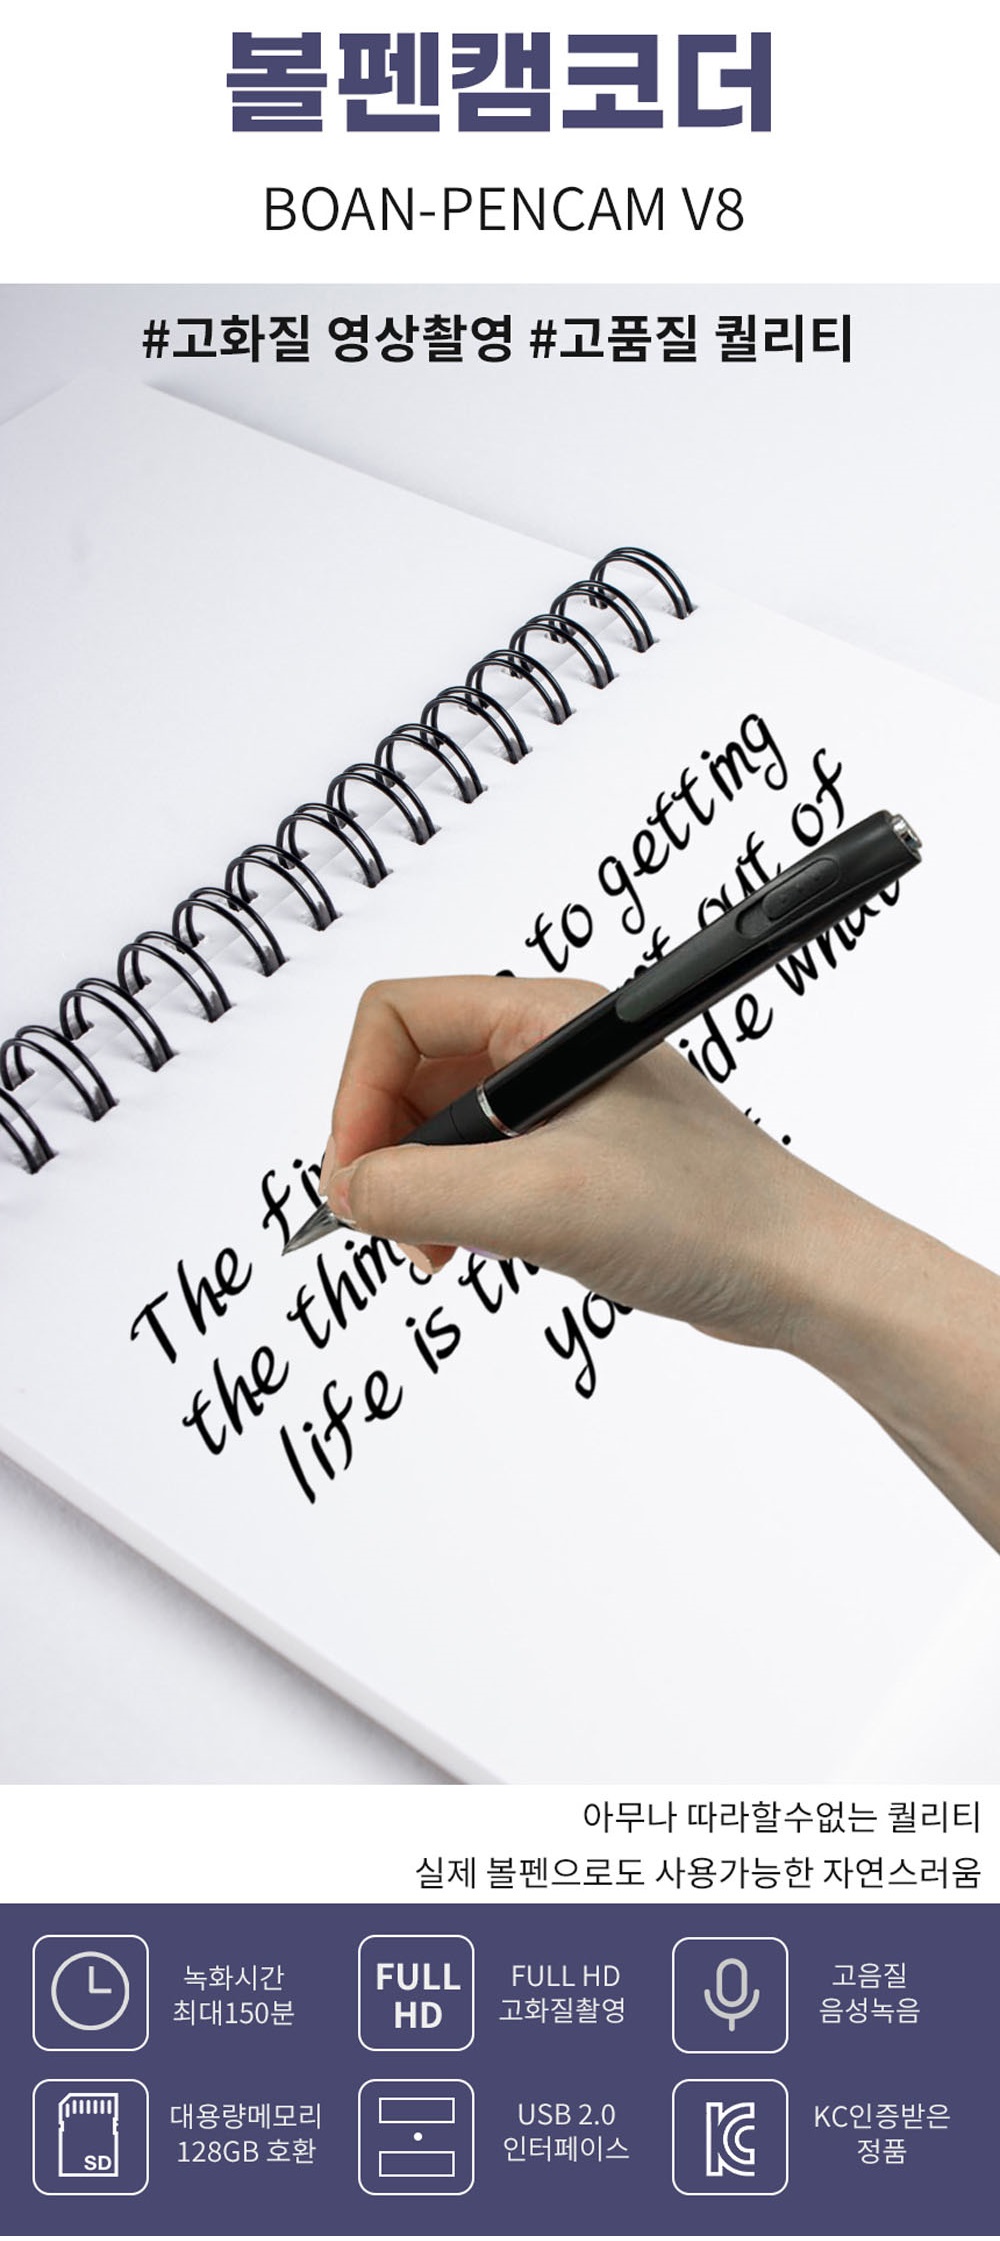 볼펜캠코더
BOAN-PENCAM V8
#고화질 영상촬영 #고품질 퀄리티
to getting
out of
ide what
The
the thing
life is th
아무나 따라할수없는 퀄리티
실제 볼펜으로도 사용가능한 자연스러움
녹화시간
최대150분
FULL
HD
FULL HD
고화질촬영
고음질
음성녹음
SD
대용량메모리
128GB 호환
USB 2.0
인터페이스
KC
KC인증받은
정품